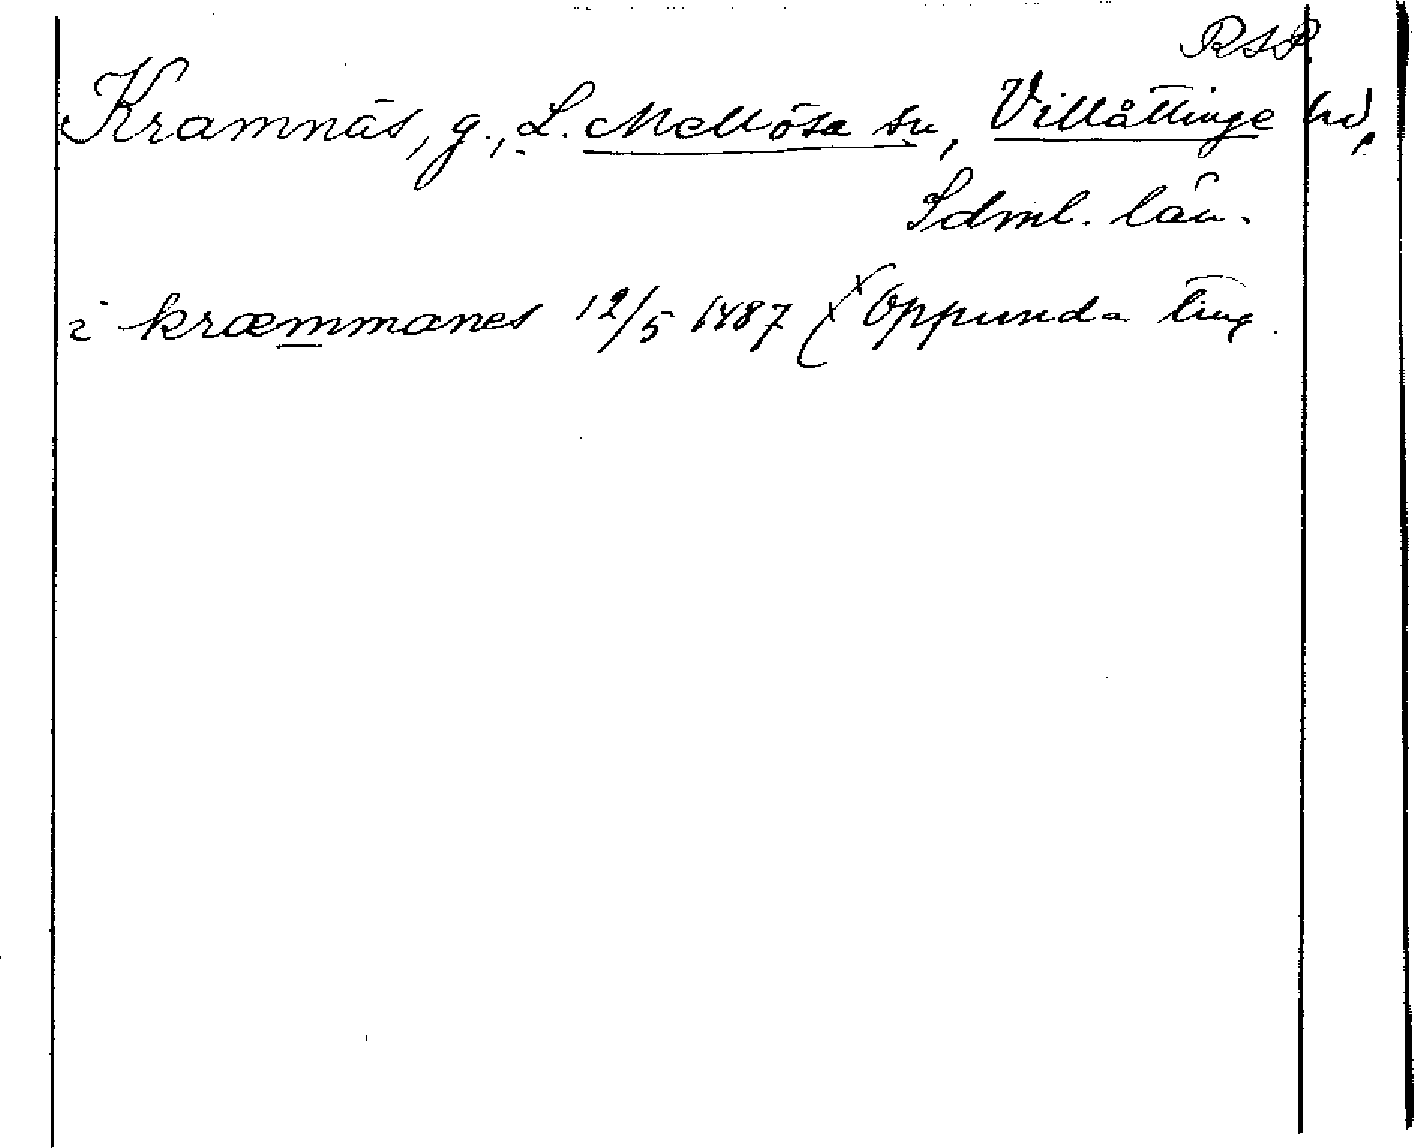 RSP
Kramnäs, g., L. Mellösa sn, Villåttinge hd,
Sdml. län.
i kræmmanes 12/5 1487 (x Oppunda ting.